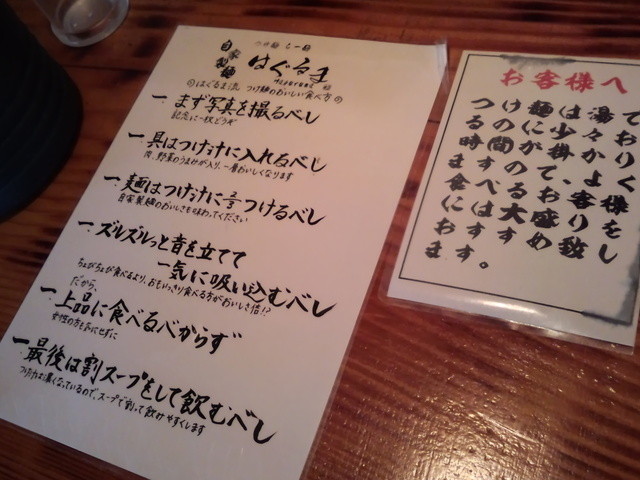 自家製麺
つけ麺 らー麺
はぐるま
◎はぐるま流 つけ麺のおいしい食べ方◎
一、まず写真を撮るべし
記念に一枚どうぞ
一、具はつけ汁に入れるべし
肉、野菜のうまみが入り、一層おいしくなります
一、麺はつけ汁に2/3つけるべし
自家製麺のおいしさも味わってください
一、ズルズルっと音を立てて
一気に吸い込むべし
ちょびちょび食べるより、おもいっきり食べる方がおいしさ倍!?
だから、
一、上品に食べるべからず
女性の方も気にせずに
一、最後は割スープをして飲むべし
つけ汁は濃くなっているので、スープで割って飲みやすくします
お客様へ
つけ麺は湯で
るのに少々お
時間が掛かり
ますので、よく
食べるお客様
には大盛りを
おすすめ致し
ます。